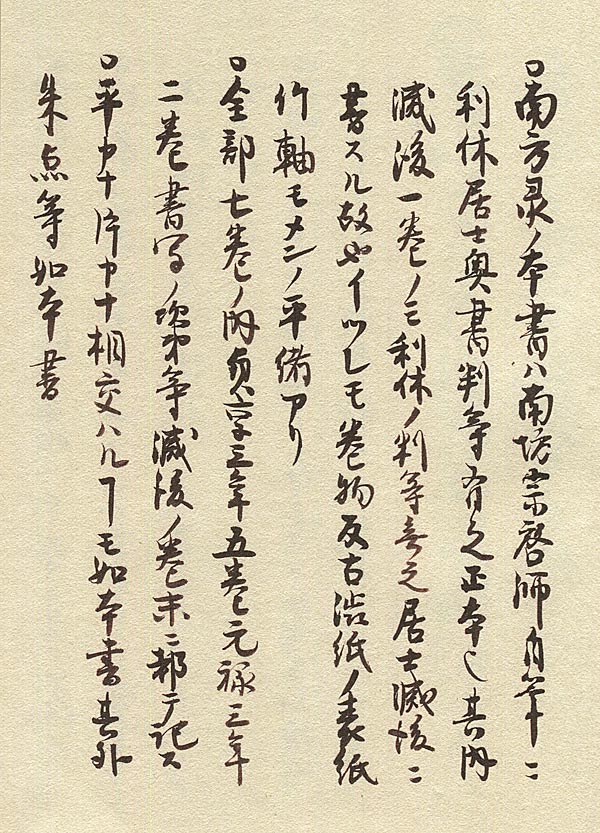 ○南方录ノ本書ハ南坊宗啓師自筆ニ
利休居士奥書判等有之正本也其内
滅後一巻ノミ利休ノ判等無之居士滅後ニ
書スル故也イツレモ巻物反古渋紙ノ表紙
竹軸モメンノ平緒アリ
○全部七巻ノ内貞享三年五巻元禄三年
二巻書写ノ次第等滅後ノ巻末ニ都テ記ス
○平カナ片カナ相交ハルヿモ如本書其外
朱点等如本書